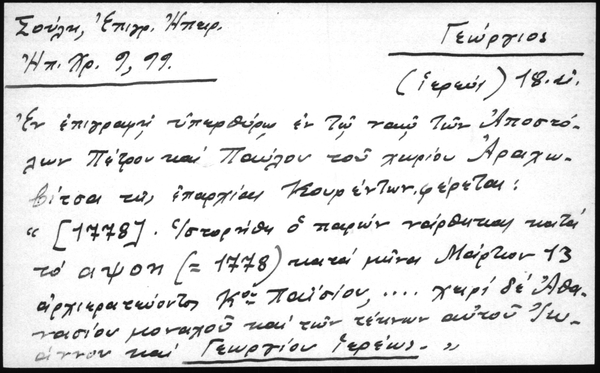 Σούλη, Ἐπιγρ. Ἠπειρ.
Ἠπ. Χρ. 9, 99.
Γεώργιος
(ἱερεύς) 18. αἰ.
Ἐν ἐπιγραφῇ ὑπερθύρῳ ἐν τῷ ναῷ τῶν Ἀποστό-
λων Πέτρου καὶ Παύλου τοῦ χωρίου Ἀραχω-
βίτσα τῆς ἐπαρχίας Κουρέντων, φέρεται:
« [1778]. Ἱστορήθη ὁ παρών νάρθηκας κατά
τό αψοη (= 1778) κατά μῆνα Μάρτιον 13
ἀρχιερατεύοντος Κου Παϊσίου, .... χειρί δέ Ἀθα-
νασίου μοναχοῦ καί τῶν τέκνων αὐτοῦ Ἰω-
άννου καί Γεωργίου Ἱερέως. »